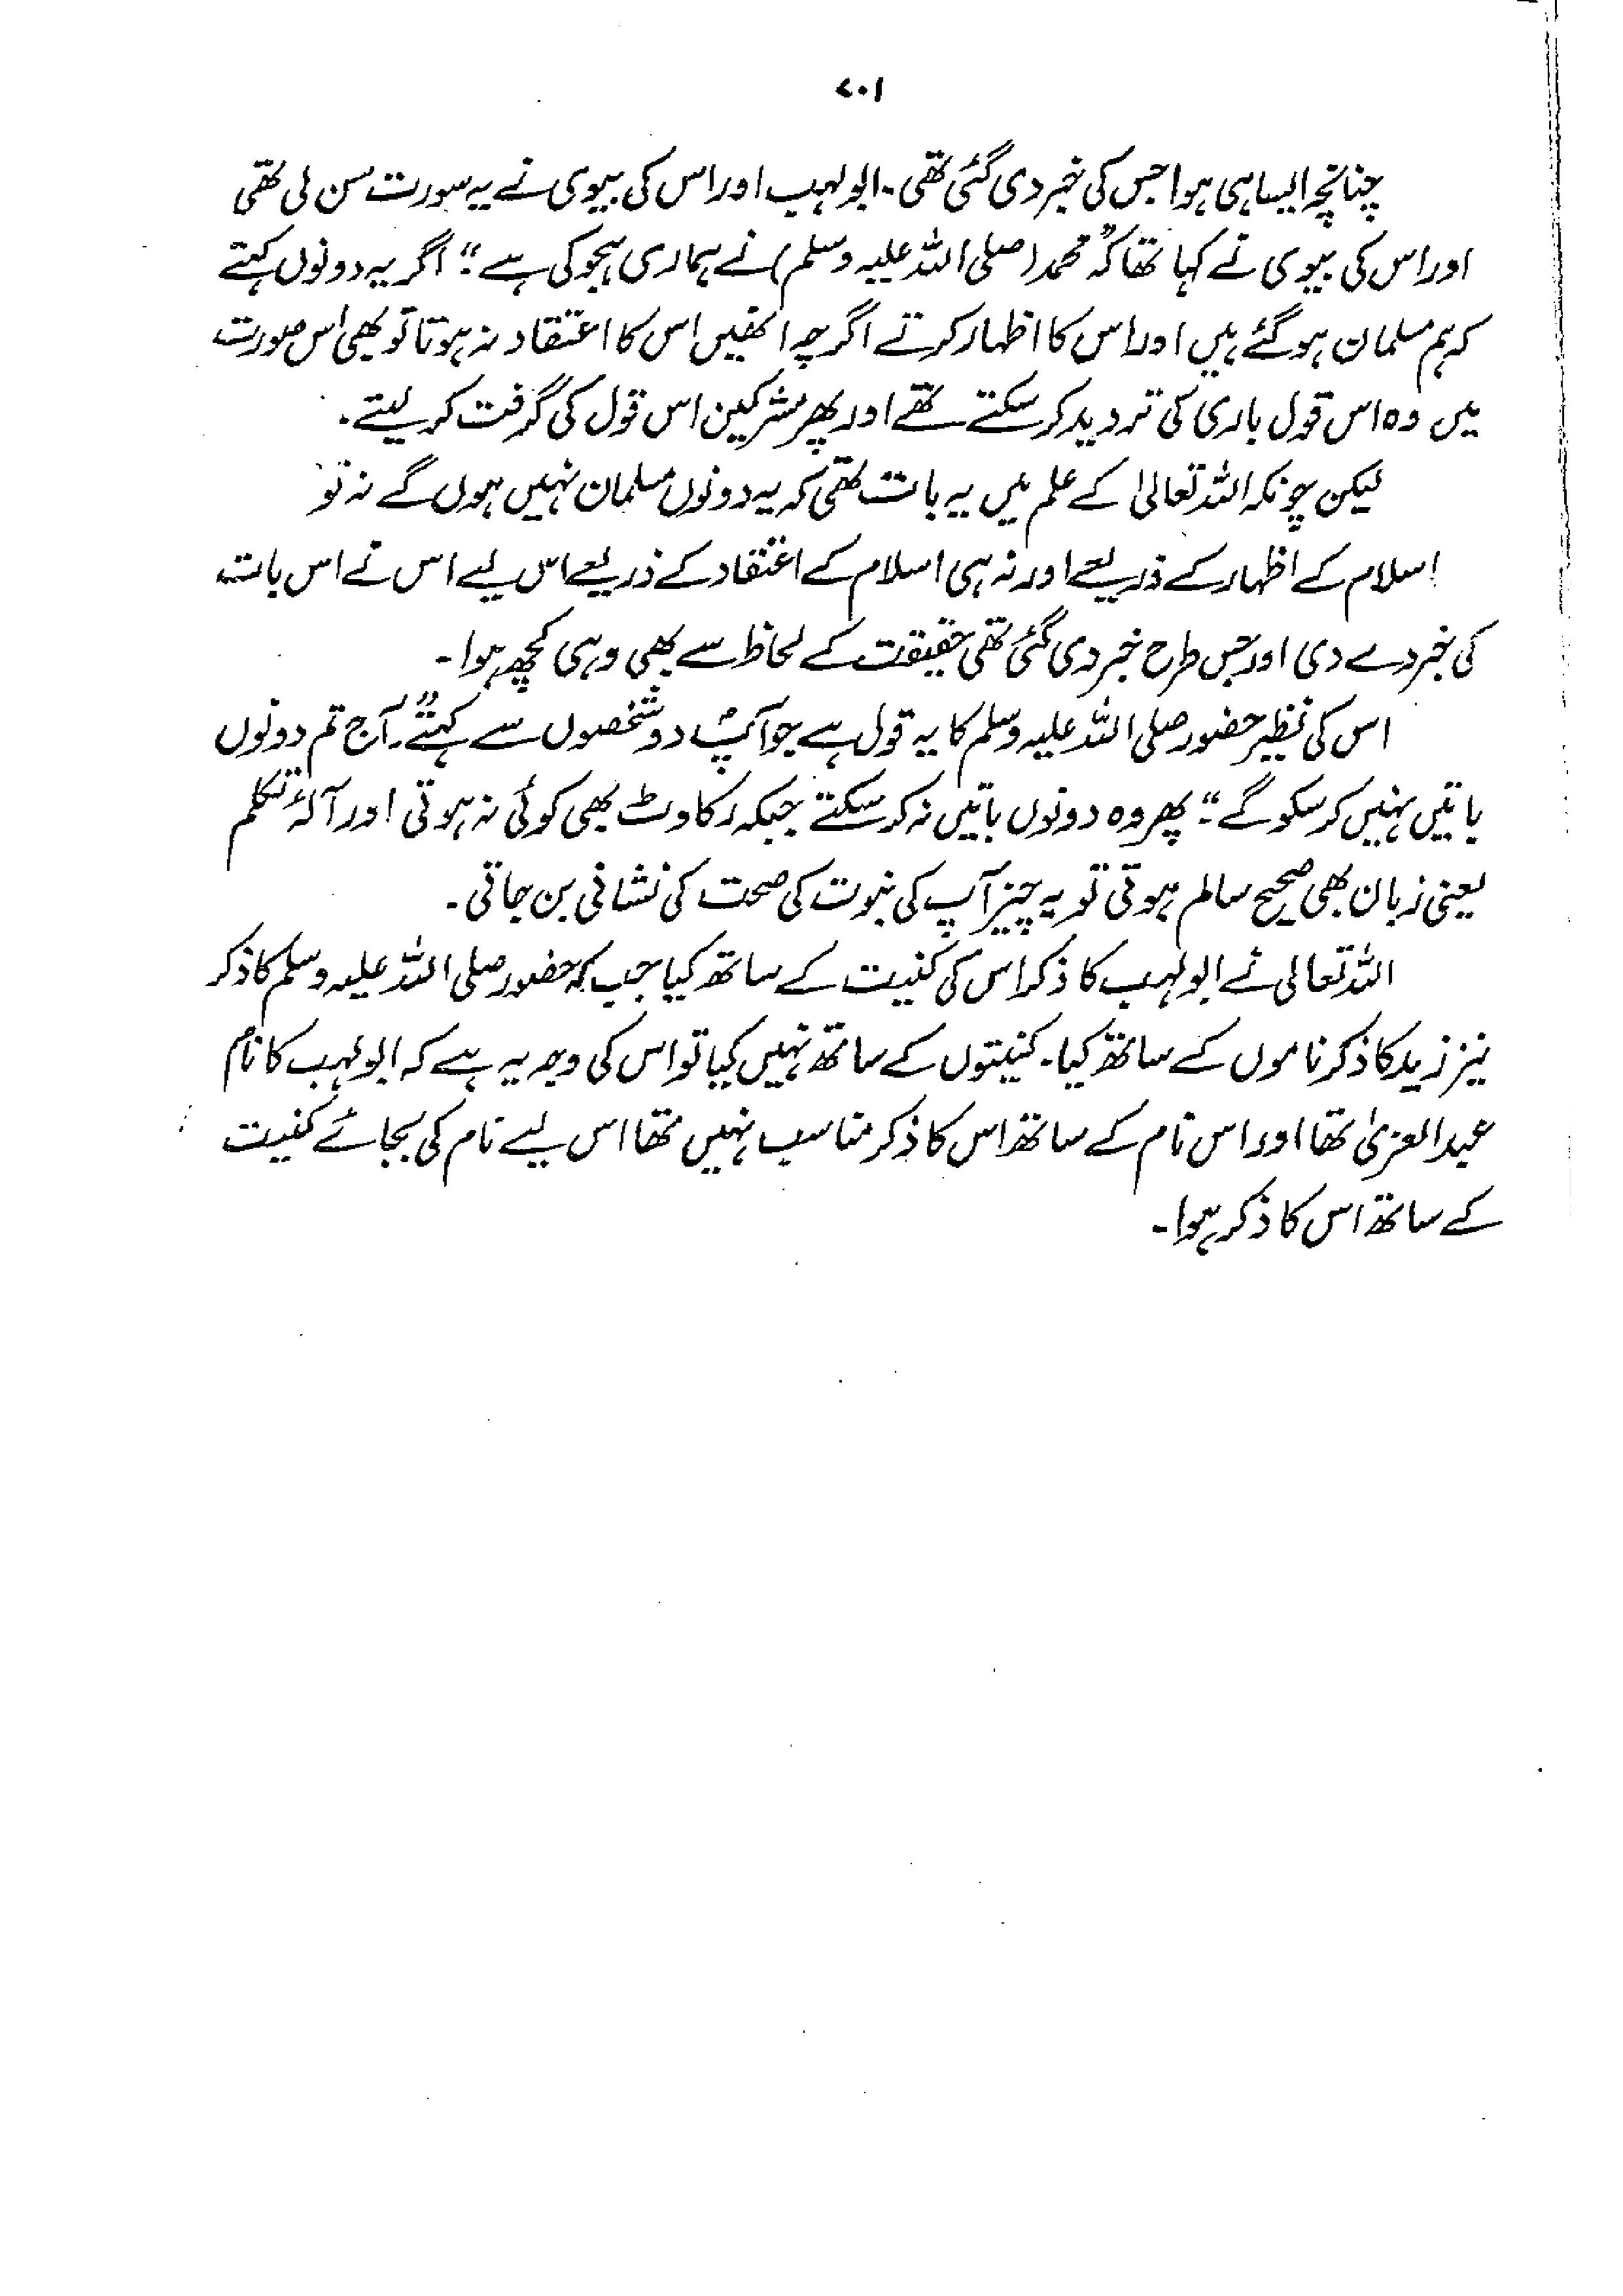 ۷۰۱
چنانچہ ایسا ہی ہوا جس کی خبر دی گئی تھی۔ ابو لہب اور اس کی بیوی نے یہ سورت سن لی تھی
اور اس کی بیوی نے کہا تھا کہ "محمد (صلی اللہ علیہ وسلم) نے ہماری ہجو کی ہے۔" اگر یہ دونوں کہتے
کہ ہم مسلمان ہو گئے ہیں اور اس کا اظہار کرتے اگرچہ انھیں اس کا اعتقاد نہ ہوتا تو بھی اس صورت
میں وہ اس قول باری کی تردید کر سکتے تھے اور پھر مشرکین اس قول کی گرفت کر لیتے۔
لیکن چونکہ اللہ تعالیٰ کے علم میں یہ بات تھی کہ یہ دونوں مسلمان نہیں ہوں گے نہ تو
اسلام کے اظہار کے ذریعے اور نہ ہی اسلام کے اعتقاد کے ذریعے اس لیے اس نے اس بات
کی خبر دے دی اور جس طرح خبر دی گئی تھی حقیقت کے لحاظ سے بھی وہی کچھ ہوا۔
اس کی نظیر حضور صلی اللہ علیہ وسلم کا یہ قول ہے جو آپؐ دو شخصوں سے کہتے "آج تم دونوں
باتیں نہیں کر سکو گے۔" پھر وہ دونوں باتیں نہ کر سکتے جبکہ رکاوٹ بھی کوئی نہ ہوتی اور آلۂ تکلم
یعنی زبان بھی صحیح سالم ہوتی تو یہ چیز آپ کی نبوت کی صحت کی نشانی بن جاتی۔
اللہ تعالیٰ نے ابو لہب کا ذکر اس کی کنیت کے ساتھ کیا جب کہ حضور صلی اللہ علیہ وسلم کا ذکر
نیز زید کا ذکر ناموں کے ساتھ کیا۔ کنیتوں کے ساتھ نہیں کیا تو اس کی وجہ یہ ہے کہ ابو لہب کا نام
عبد العزیٰ تھا اور اس نام کے ساتھ اس کا ذکر مناسب نہیں تھا اس لیے نام کی بجائے کنیت
کے ساتھ اس کا ذکر ہوا۔